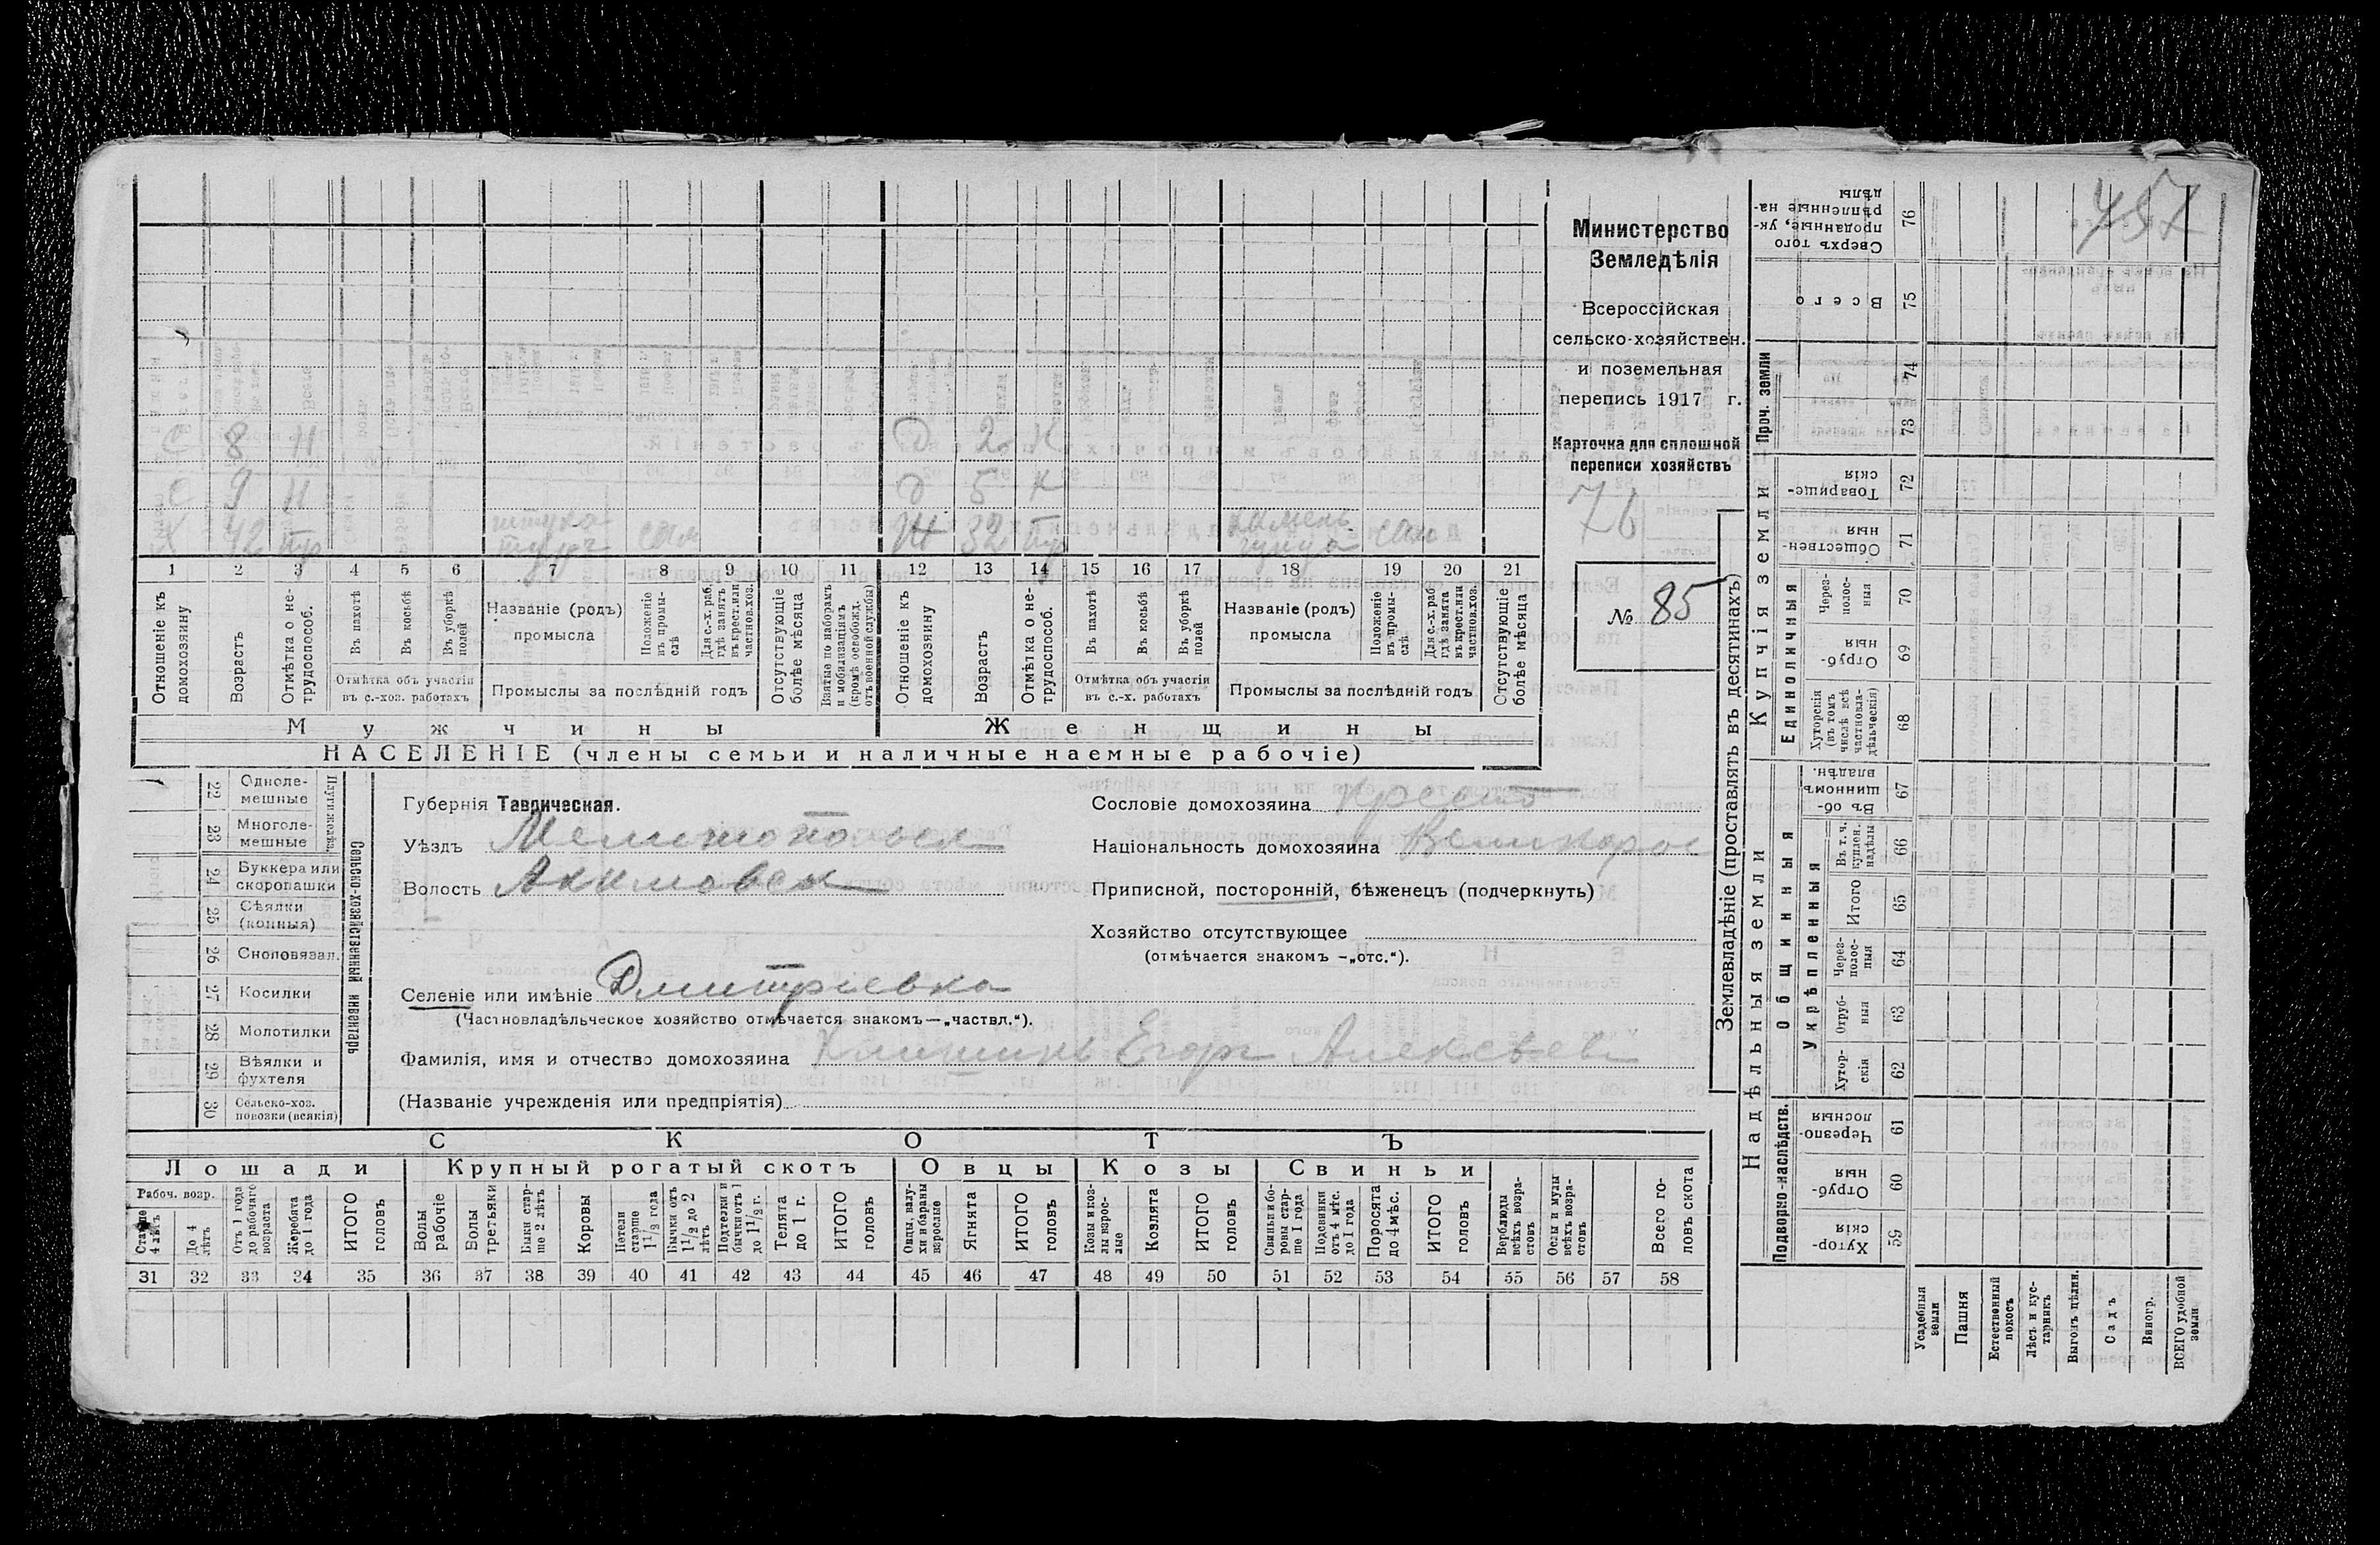 457
Министерство
Земледѣлія
Всероссійская
сельско-хозяйствен.
и поземельная
перепись 1917 г.
Карточка для сплошной
переписи хозяйствъ
76
№ 85
С 8 Н Д 2 Н
С 9 Н Д 5 Н
Х 42 пр штука-туръ сам Ж 32 пр сам
1 2 3 4 5 6 7 8 9 10 11 12 13 14 15 16 17 18 19 20 21
Отношеніе къ домохозяину
Возрастъ
Отмѣтка о нетрудоспособ.
Въ пахотѣ
Въ косьбѣ
Въ уборкѣ полей
Отмѣтка объ участіи въ с.-хоз. работахъ
Названіе (родъ) промысла
Положеніе въ промы-слѣ
Для с.-х. раб. гдѣ занятъ въ крест. или частнов. хоз.
Промыслы за послѣдній годъ
Отсутствующіе болѣе мѣсяца
Взятые по наборамъ и мобилизаціямъ (кромѣ освобожд. отъ военной службы)
Отношеніе къ домохозяину
Возрастъ
Отмѣтка о не-трудоспособ.
Въ пахотѣ
Въ косьбѣ
Въ уборкѣ полей
Отмѣтка объ участіи въ с.-х. работахъ
Названіе (родъ) промысла
Положеніе въ промы-слѣ
Для с.-х. раб. гдѣ занята въ крест. или частнов. хоз.
Промыслы за послѣдній годъ
Отсутствующіе болѣе мѣсяца
Мужчины Женщины
НАСЕЛЕНІЕ (члены семьи и наличные наемные рабочіе)
Сельско-хозяйственный инвентарь
22 Одноле-мешные
23 Многоле-мешные
24 Буккера или скоропашки
25 Сѣялки (конныя)
26 Сноповязал.
27 Косилки
28 Молотилки
29 Вѣялки и фухтеля
30 Сельско-хоз. повозки (всякія)
Губернія Таврическая.
Уѣздъ Мелитопольск
Волость Акимовск
Сословіе домохозяина крест
Національность домохозяина Великорос
Приписной, посторонній, бѣженецъ (подчеркнуть)
Хозяйство отсутствующее
(отмѣчается знакомъ —„отс.“).
Селеніе или имѣніе Дмитріевка
(Частновладѣльческое хозяйство отмѣчается знакомъ—„частвл.“).
Фамилія, имя и отчество домохозяина Егоръ Алексѣев
(Названіе учрежденія или предпріятія)
СКОТЪ
Лошади Крупный рогатый скотъ Овцы Козы Свиньи
Рабоч. возр.
Старше 4 лѣтъ
До 4 лѣтъ
Отъ 1 года до рабочаго возраста
Жеребята до 1 года
ИТОГО головъ
Волы рабочіе
Волы третьяки
Быки стар-ше 2 лѣтъ
Коровы
Нетели старше 1½ года
Бычки отъ 1½ до 2 лѣтъ
Подтелки и бычки отъ 1 до 1½ г.
Телята до 1 г.
ИТОГО головъ
Овцы, валу-хи и бараны взрослые
Ягнята
ИТОГО головъ
Козы и коз-лы взрос-лые
Козлята
ИТОГО головъ
Свиньи и бо-ровы стар-ше 1 года
Подсвинки отъ 4 мѣс. до 1 года
Поросята до 4 мѣс.
ИТОГО головъ
Верблюды всѣхъ возра-стовъ
Ослы и мулы всѣхъ возра-стовъ
Всего го-ловъ скота
31 32 33 34 35 36 37 38 39 40 41 42 43 44 45 46 47 48 49 50 51 52 53 54 55 56 57 58
Землевладѣніе (проставлять въ десятинахъ)
Купчія земли
Надѣльныя земли
Проч. земли
Единоличныя
Общинныя
Укрѣпленныя
Подворно-наслѣдств.
Сверхъ того проданные, ук-рѣпленные на-дѣлы 76
Всего 75
74
73
Товарище-скія 72
Обществен-ныя 71
Через-полос-ныя 70
Отруб-ныя 69
Хуторскія (въ томъ числѣ всѣ частновла-дѣльческія) 68
Въ об-щинномъ владѣн. 67
Въ т. ч. куплен. надѣлы 66
Итого 65
Через-полос-ныя 64
Отруб-ныя 63
Хутор-скія 62
Черезпо-лосныя 61
Отруб-ныя 60
Хутор-скія 59
Усадебныя земли
Пашня
Естественный покосъ
Лѣсъ и кус-тарникъ
Выгонъ цѣлин.
Садъ
Виногр.
ВСЕГО удобной земли